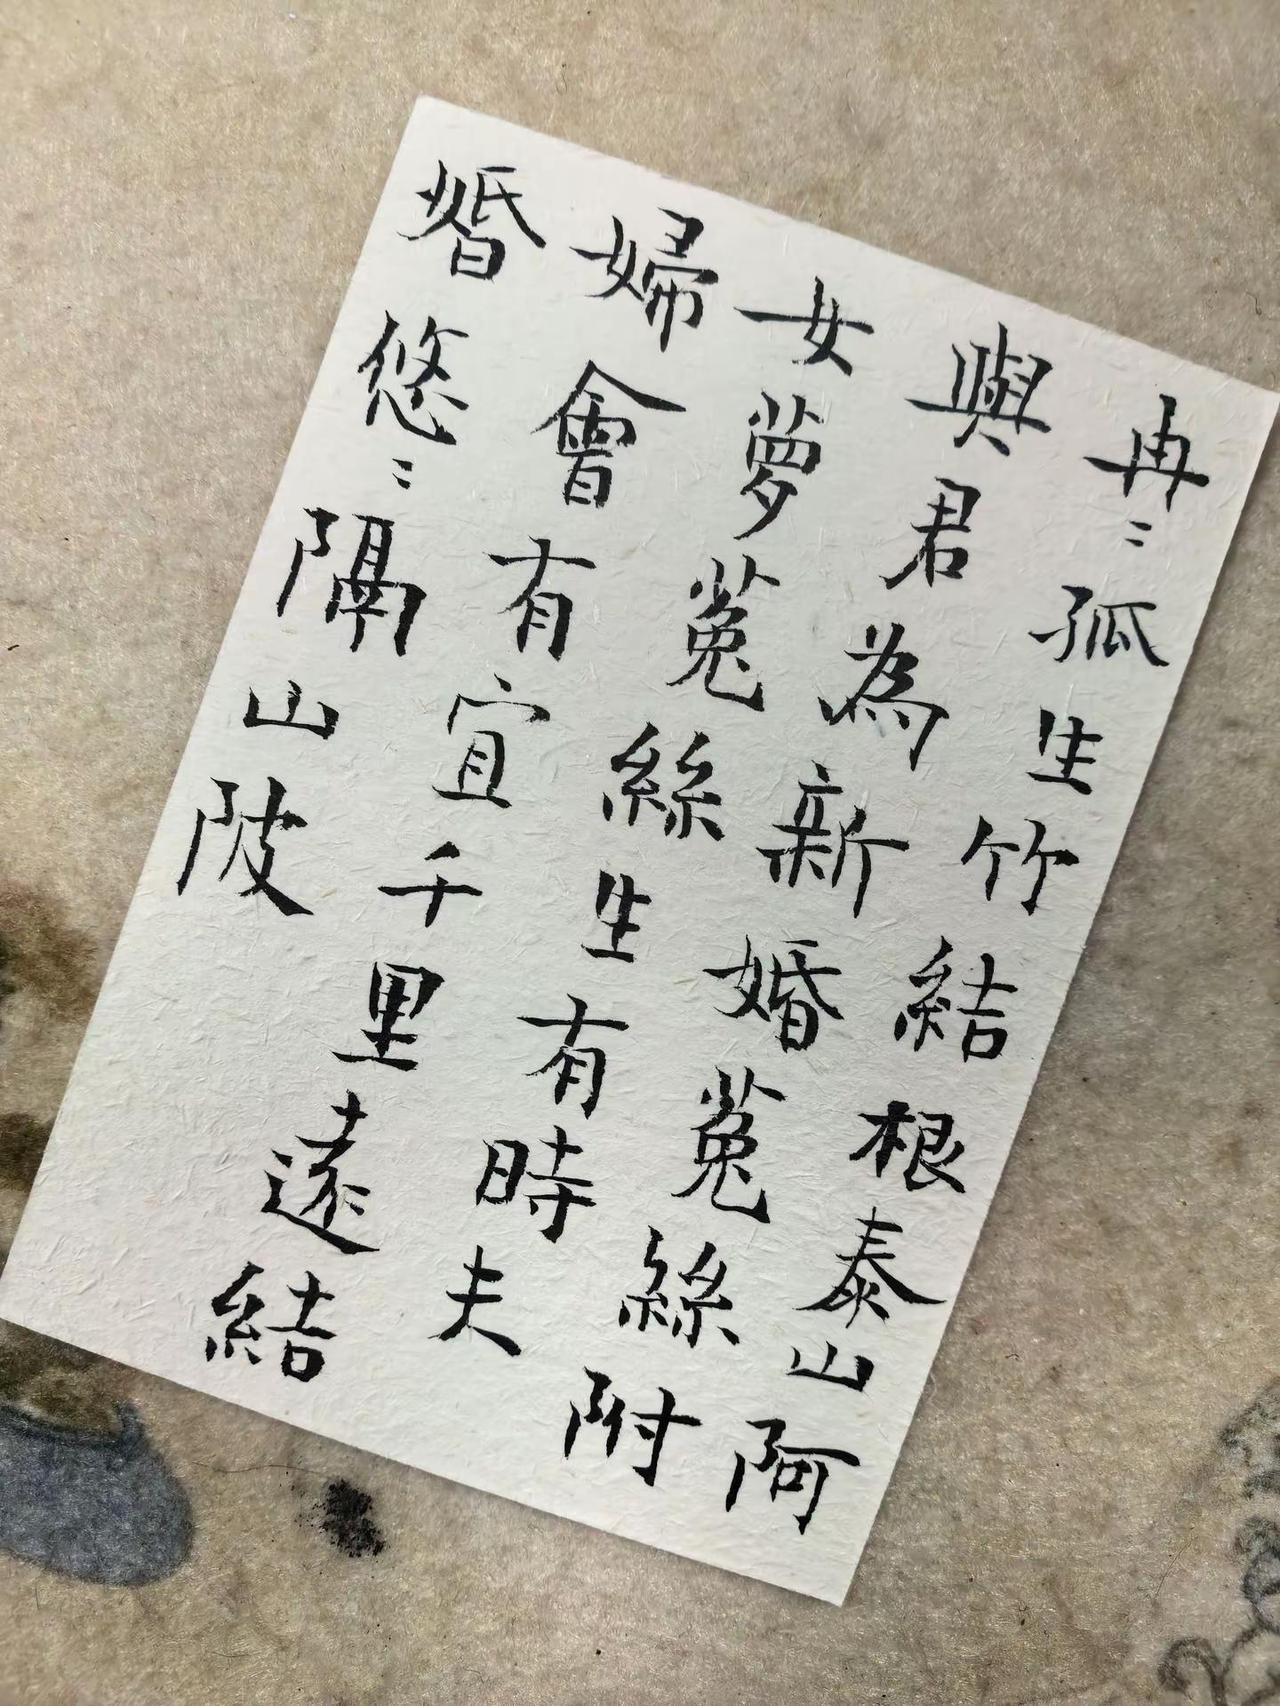 冉〻孤生竹結根泰山阿
與君為新婚菟絲附
女蘿菟絲生有時夫
婦會有宜千里遠結
婚悠〻隔山陂